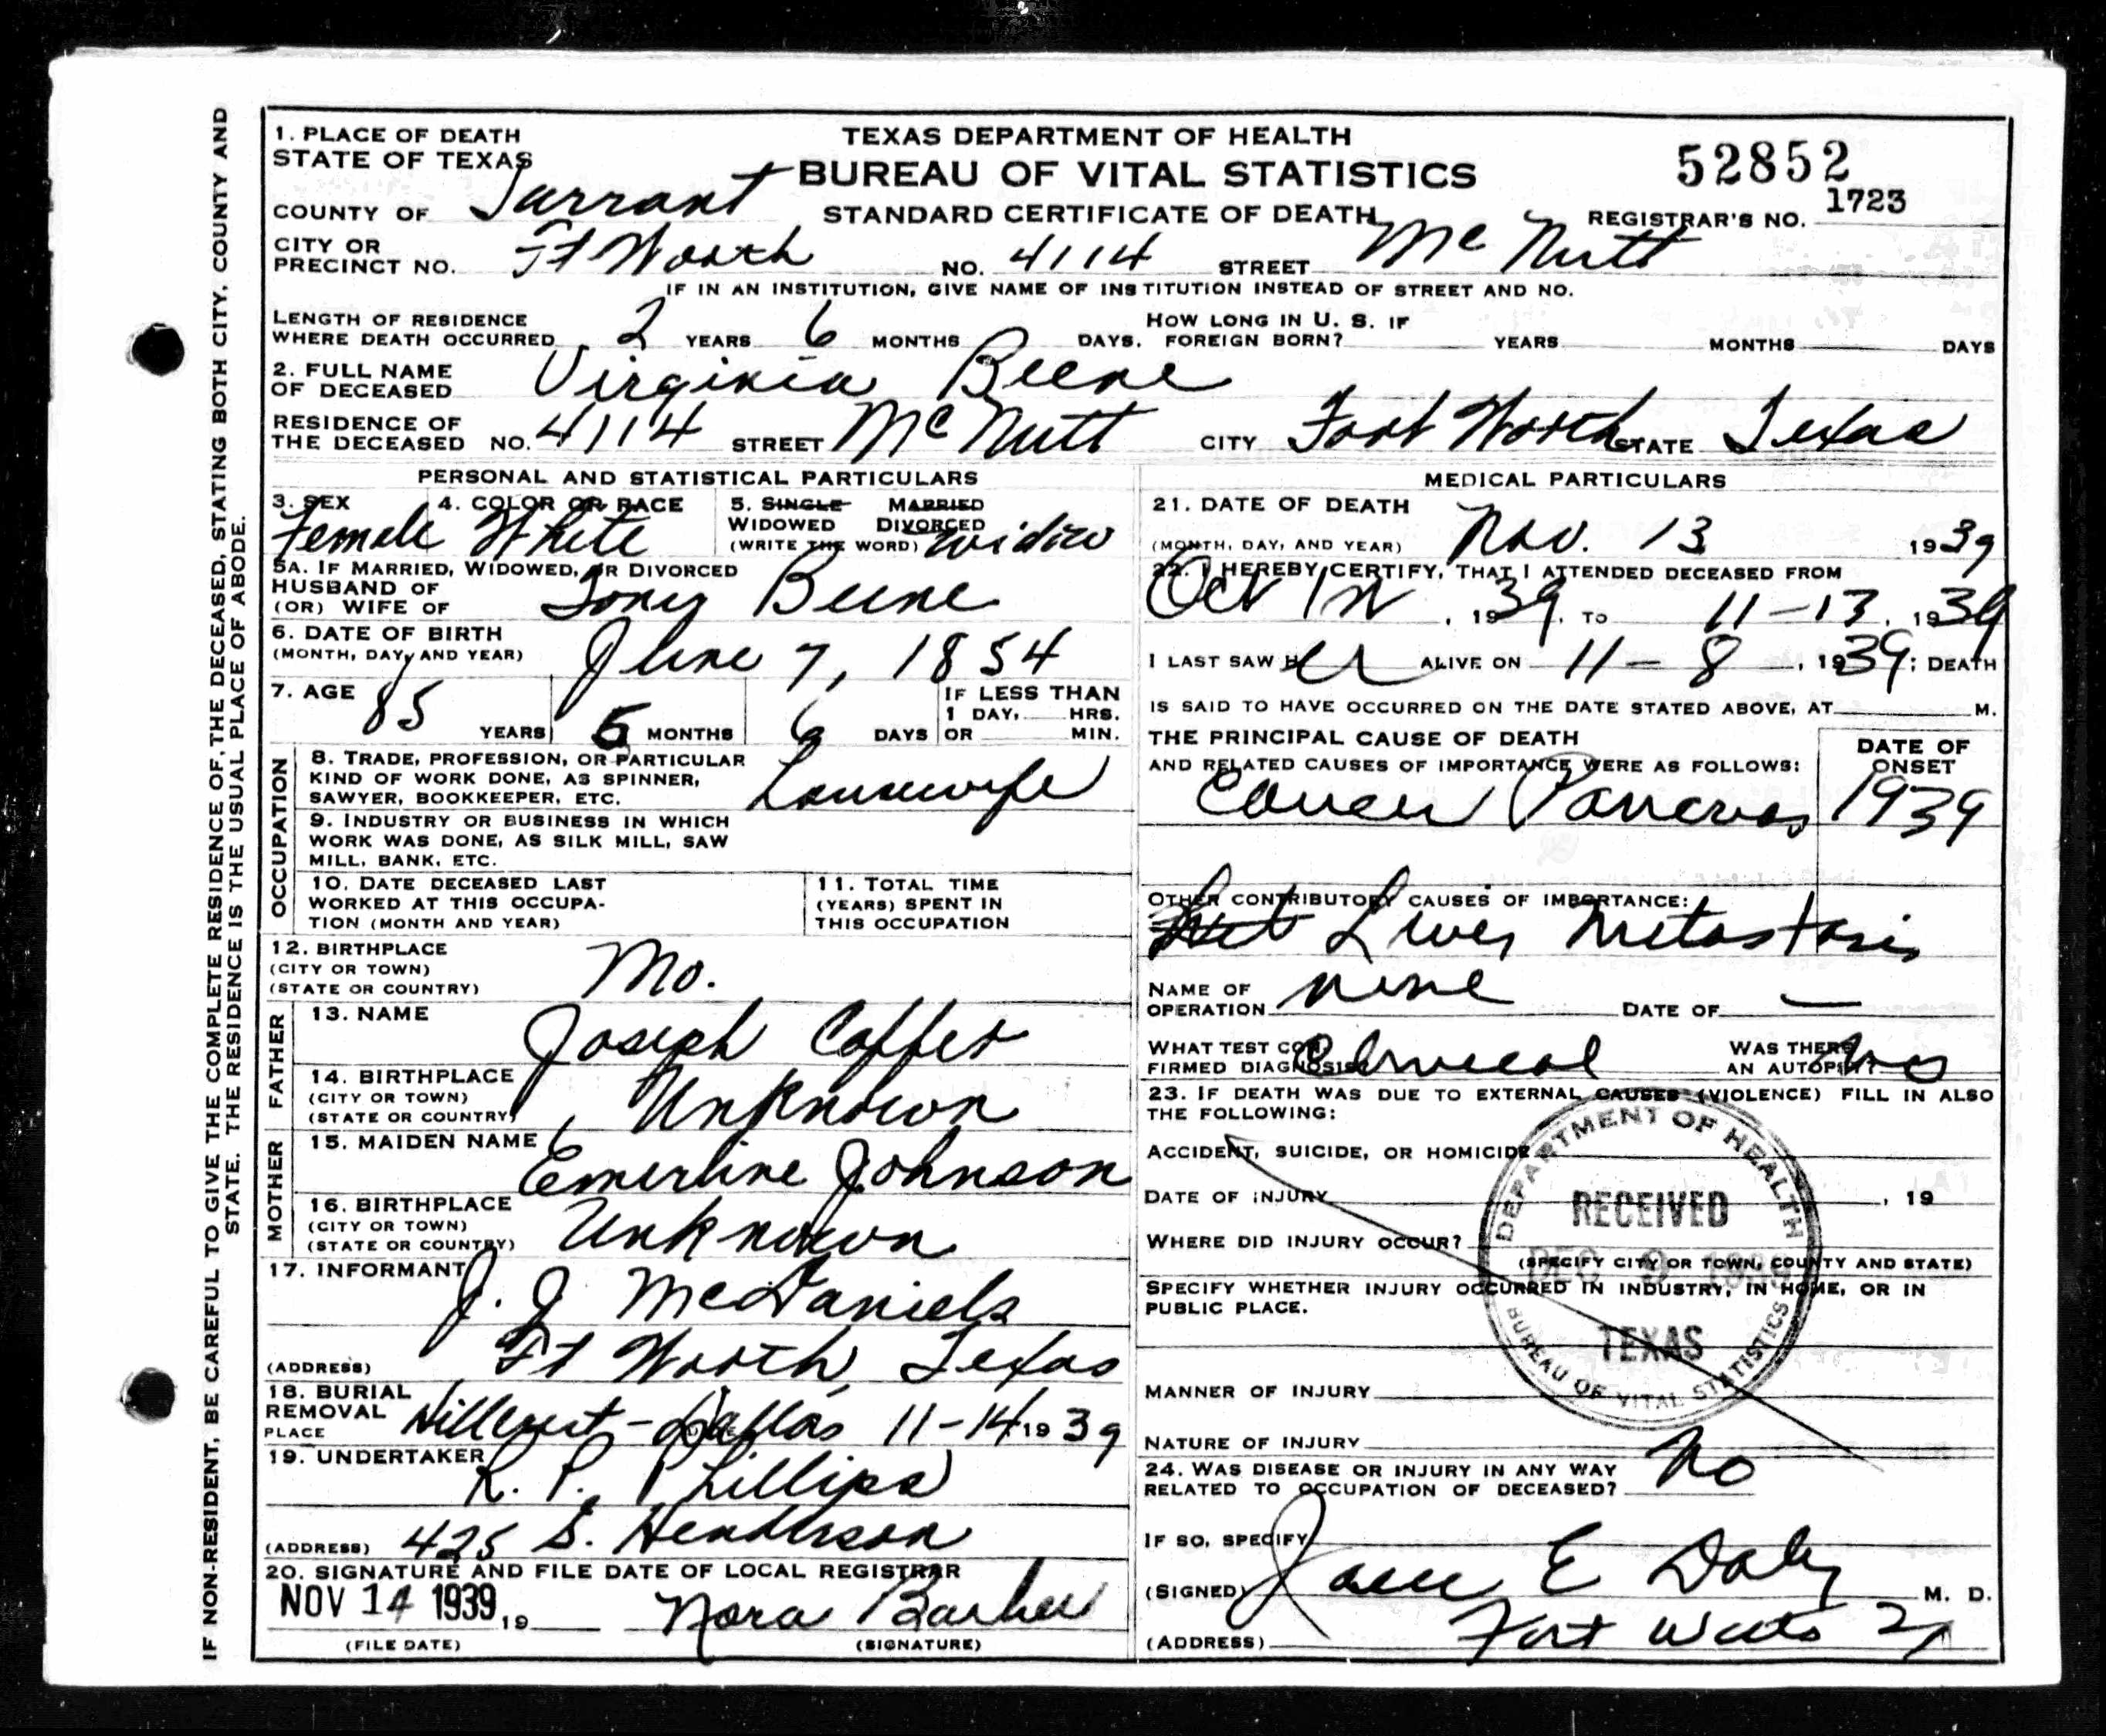 IF NON-RESIDENT, BE CAREFUL TO GIVE THE COMPLETE RESIDENCE OF THE DECEASED, STATING BOTH CITY, COUNTY AND
STATE. THE RESIDENCE IS THE USUAL PLACE OF ABODE.
1. PLACE OF DEATH
STATE OF TEXAS
TEXAS DEPARTMENT OF HEALTH
BUREAU OF VITAL STATISTICS
STANDARD CERTIFICATE OF DEATH
52852
COUNTY OF Tarrant
REGISTRAR'S NO. 1723
CITY OR PRECINCT NO. Ft Worth NO. 4114 STREET Mc Nutt
IF IN AN INSTITUTION, GIVE NAME OF INSTITUTION INSTEAD OF STREET AND NO.
LENGTH OF RESIDENCE WHERE DEATH OCCURRED 2 YEARS 6 MONTHS DAYS. HOW LONG IN U. S. IF FOREIGN BORN? YEARS MONTHS DAYS
2. FULL NAME OF DECEASED Virginia Beene
RESIDENCE OF THE DECEASED NO. 4114 STREET McNutt CITY Fort Worth STATE Texas
PERSONAL AND STATISTICAL PARTICULARS
3. SEX Female
4. COLOR OR RACE White
5. SINGLE MARRIED
WIDOWED DIVORCED
(WRITE THE WORD) widow
5A. IF MARRIED, WIDOWED, OR DIVORCED
HUSBAND OF
(OR) WIFE OF Tony Beene
6. DATE OF BIRTH
(MONTH, DAY, AND YEAR) June 7, 1854
7. AGE 85 YEARS 5 MONTHS 6 DAYS
IF LESS THAN
1 DAY, HRS.
OR MIN.
OCCUPATION
8. TRADE, PROFESSION, OR PARTICULAR
KIND OF WORK DONE, AS SPINNER,
SAWYER, BOOKKEEPER, ETC. Housewife
9. INDUSTRY OR BUSINESS IN WHICH
WORK WAS DONE, AS SILK MILL, SAW
MILL, BANK, ETC.
10. DATE DECEASED LAST
WORKED AT THIS OCCUPA-
TION (MONTH AND YEAR)
11. TOTAL TIME
(YEARS) SPENT IN
THIS OCCUPATION
12. BIRTHPLACE
(CITY OR TOWN)
(STATE OR COUNTRY) Mo.
FATHER
13. NAME Joseph Coffet
14. BIRTHPLACE
(CITY OR TOWN)
(STATE OR COUNTRY) Unknown
MOTHER
15. MAIDEN NAME Emerline Johnson
16. BIRTHPLACE
(CITY OR TOWN)
(STATE OR COUNTRY) Unknown
17. INFORMANT J. J. McDaniels
(ADDRESS) Ft Worth, Texas
18. BURIAL
REMOVAL
PLACE Hillcrest - Dallas 11-14 1939
19. UNDERTAKER R. P. Phillips
(ADDRESS) 425 S. Henderson
20. SIGNATURE AND FILE DATE OF LOCAL REGISTRAR
NOV 14 1939, 19 Nora Barher
(FILE DATE) (SIGNATURE)
MEDICAL PARTICULARS
21. DATE OF DEATH
(MONTH, DAY, AND YEAR) Nov. 13 1939
22. I HEREBY CERTIFY, THAT I ATTENDED DECEASED FROM
Oct 1st, 1939, TO 11-13, 1939
I LAST SAW her ALIVE ON 11-8, 1939; DEATH
IS SAID TO HAVE OCCURRED ON THE DATE STATED ABOVE, AT M.
THE PRINCIPAL CAUSE OF DEATH
AND RELATED CAUSES OF IMPORTANCE WERE AS FOLLOWS:
DATE OF
ONSET
Cancer Pancreas 1939
OTHER CONTRIBUTORY CAUSES OF IMPORTANCE:
Liver Metastasis
NAME OF
OPERATION none DATE OF —
WHAT TEST CON-
FIRMED DIAGNOSIS Clinical
WAS THERE
AN AUTOPSY? no
23. IF DEATH WAS DUE TO EXTERNAL CAUSES (VIOLENCE) FILL IN ALSO
THE FOLLOWING:
ACCIDENT, SUICIDE, OR HOMICIDE
DATE OF INJURY , 19
WHERE DID INJURY OCCUR?
(SPECIFY CITY OR TOWN, COUNTY AND STATE)
SPECIFY WHETHER INJURY OCCURRED IN INDUSTRY, IN HOME, OR IN
PUBLIC PLACE.
DEPARTMENT OF HEALTH
RECEIVED
DEC 9 1939
TEXAS
BUREAU OF VITAL STATISTICS
MANNER OF INJURY
NATURE OF INJURY
24. WAS DISEASE OR INJURY IN ANY WAY
RELATED TO OCCUPATION OF DECEASED? No
IF SO, SPECIFY
(SIGNED) E Daly M. D.
(ADDRESS) Fort Worth